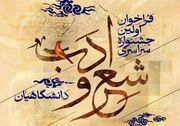 فراخوان
اولین
جشنواره
سراسری
شعر و ادب
دانشگاهیان